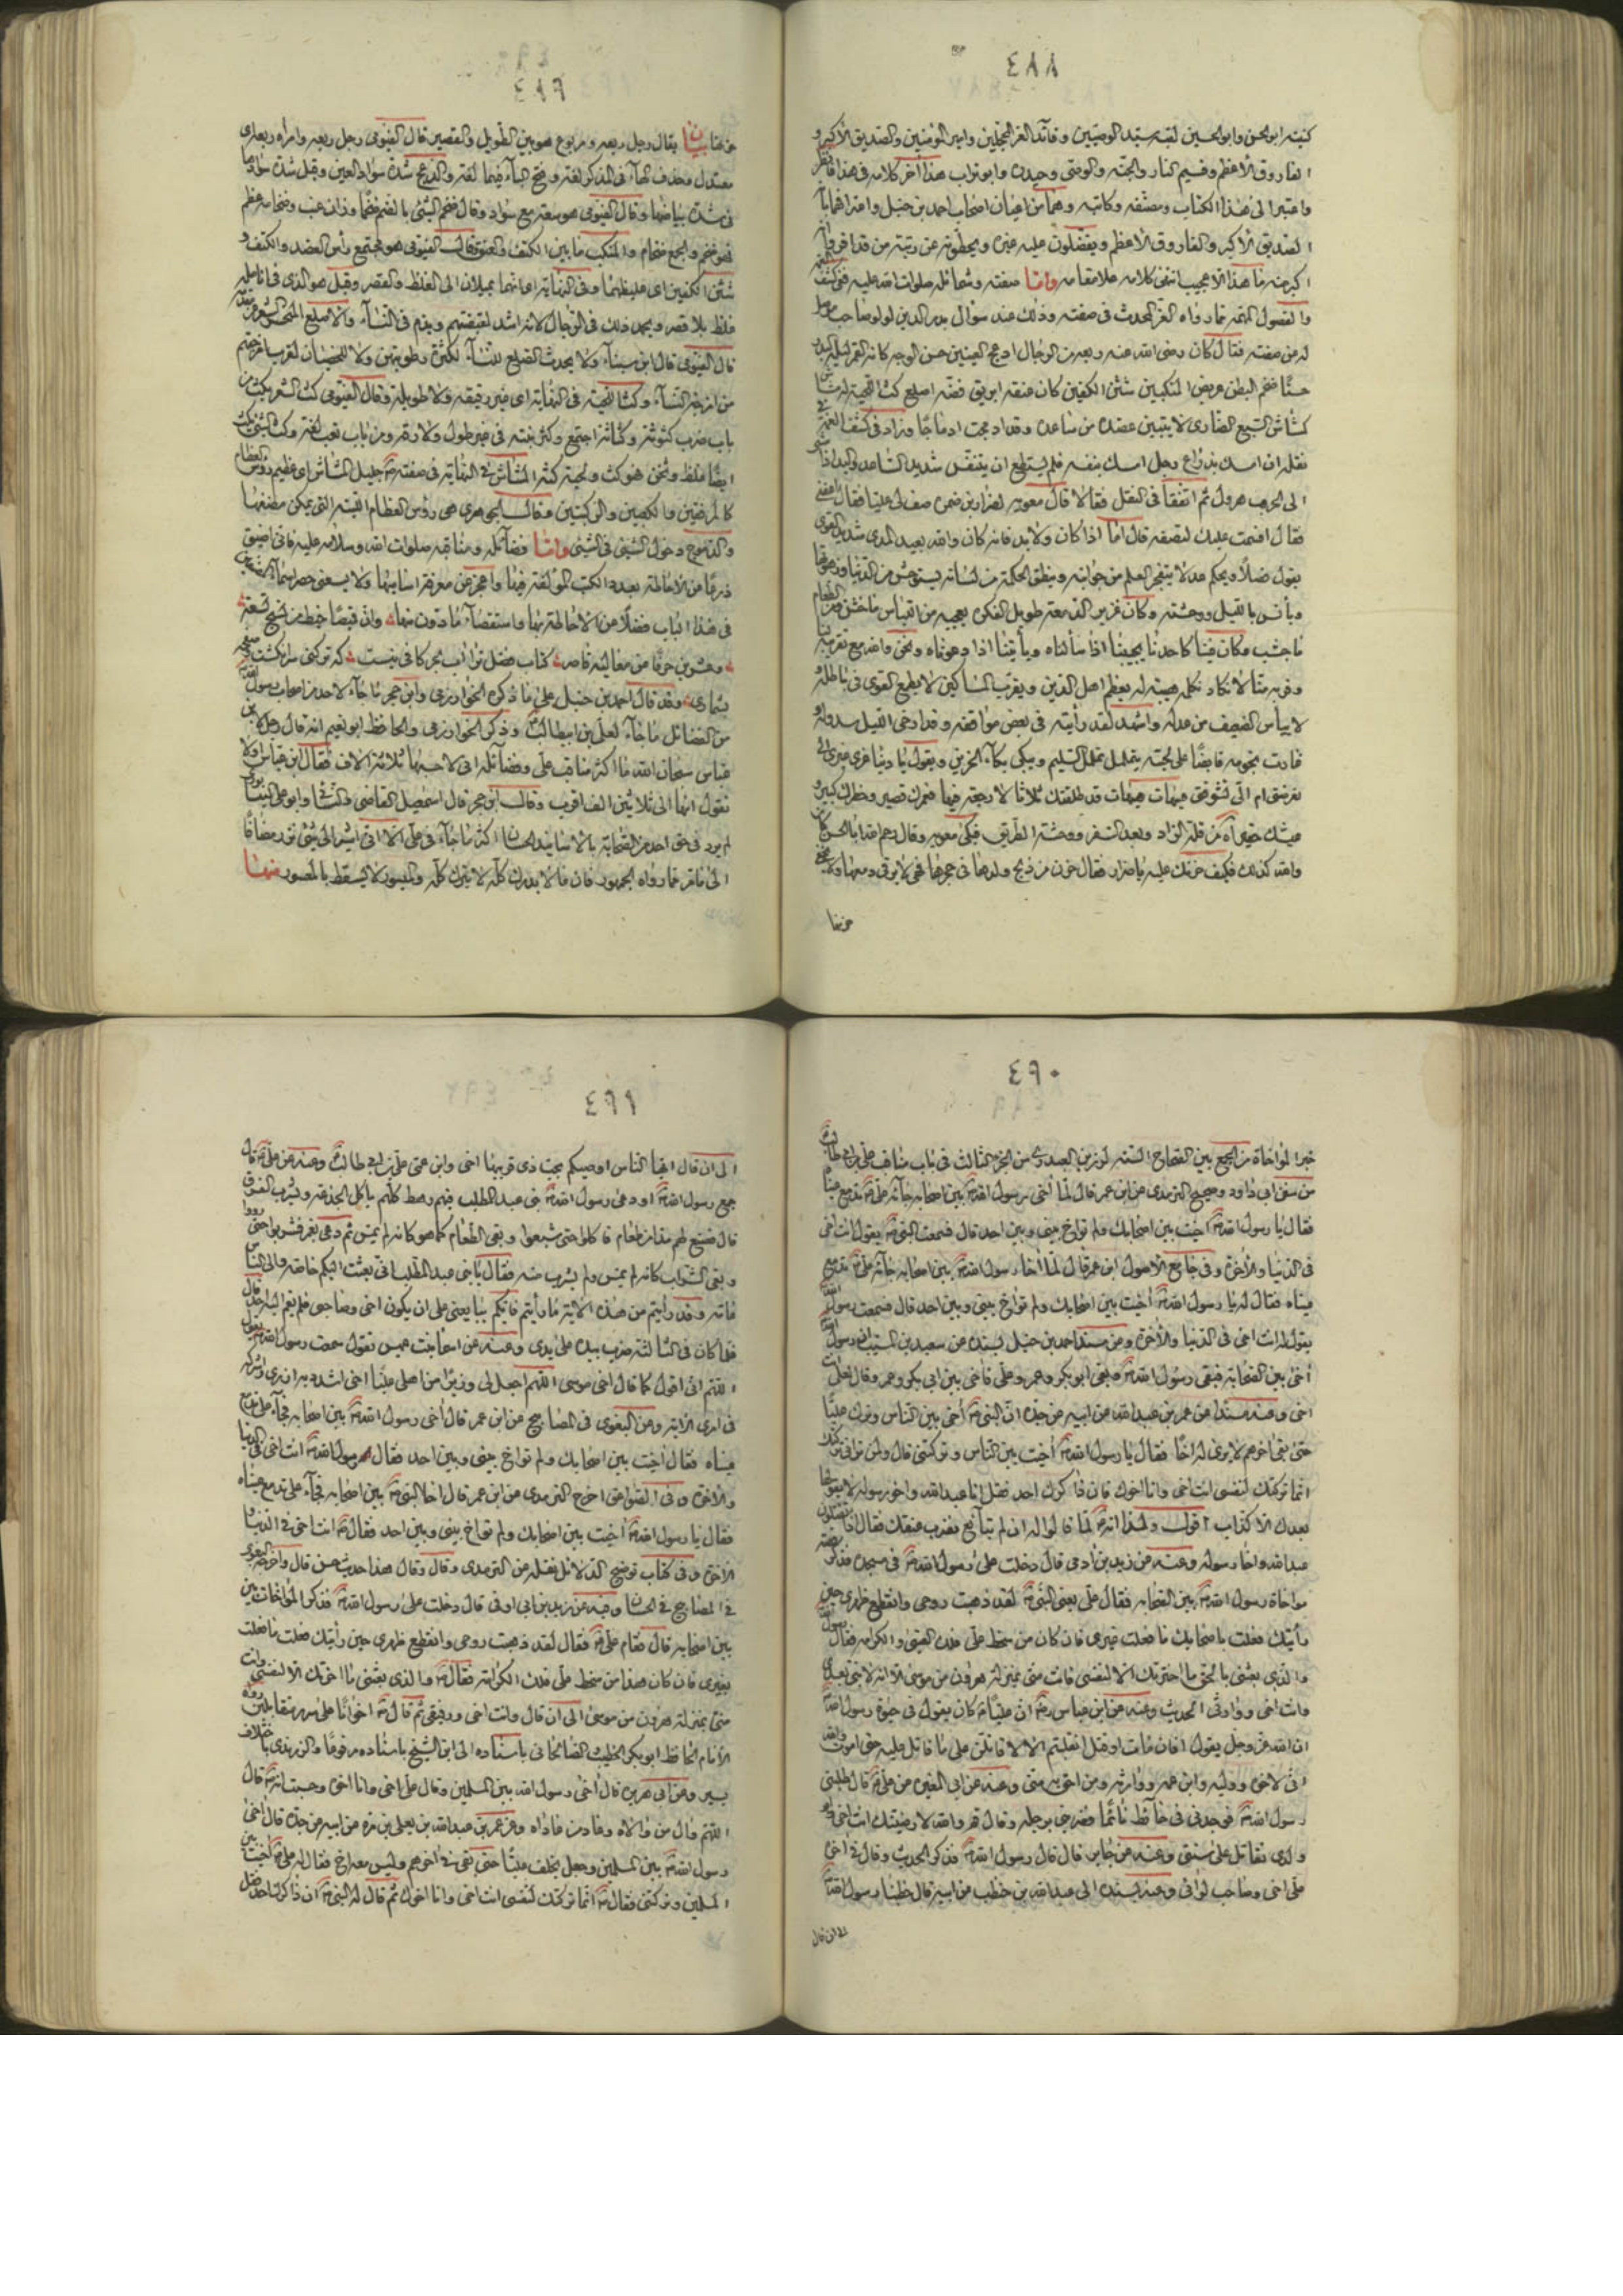 ٤٨٨
كنيته ابو الحسن وابو الحسين لقبه سيد الوصيين وقائد الغر المحجلين وامير المؤمنين والصديق الاكبر و
الفاروق الاعظم وقسيم النار والجنة والوصى وحيدرة وابو تراب هذا آخر كلامه فى هذا
واعتبرا الى هذا الكتاب ومصنفه وكاتبه وهما من اعيان اصحاب احمد بن حنبل واعترافهما
الصديق الاكبر والفاروق الاعظم ويفضلون عليه غيره ويحطونه عن رتبته
اكبر منه ما هذا الا عجيب انتهى كلامه علا مقامه واما صفته وشمائله صلوات الله عليه ففى كشف
والفصول المهمة مما رواه العز المحدث فى صفته وذلك عند سؤال بدر الدين لولو صاحب
له عن صفته فقال كان رضى الله عنه ربعة من الرجال ادعج العينين حسن الوجه كانه القمر ليلة البدر
حسنا ضخم البطن عريض المنكبين شثن الكفين كان عنقه ابريق فضة اصلع كث اللحية له
كمشاش السبع الضارى لا يتبين عضده من ساعده وقد ادمجت ادماجا وزاد فى كشف
نقله ان امسك بذراع رجل امسك بنفسه فلم يستطع ان يتنفس شديد الساعد واليد اذا
الى الحرب هرول ثم اتفقا فى النقل فقالا قال معوية لضرار بن ضمرة صف لى عليا فقال
فقال اقسمت عليك لتصفنه قال اما اذا كان ولا بد فانه كان والله بعيد المدى شديد القوى
يقول فصلا ويحكم عدلا يتفجر العلم من جوانبه وينطق الحكمة من لسانه يستوحش من الدنيا وزهرتها
ويأنس بالليل ووحشته وكان غزير الدمعة طويل الفكرة يعجبه من اللباس ما خشن ومن الطعام
ما جشب وكان فينا كاحدنا يجيبنا اذا سألناه ويأتينا اذا دعوناه ونحن والله مع تقريبه
وقربه منا لا نكاد نكلمه هيبة له يعظم اهل الدين ويقرب المساكين لا يطمع القوى فى باطله
لا ييأس الضعيف من عدله واشهد لقد رأيته فى بعض مواقفه وقد ارخى الليل سدوله و
غارت نجومه قابضا على لحيته يتململ تململ السليم ويبكى بكاء الحزين ويقول يا دنيا غرى غيرى
تعرضت ام الى تشوقت هيهات هيهات قد طلقتك ثلاثا لا رجعة فيها فعمرك قصير وخطرك كبير و
عيشك حقير آه من قلة الزاد وبعد السفر ووحشة الطريق فبكى معوية وقال رحم الله ابا الحسن كان
والله كذلك فكيف حزنك عليه يا ضرار فقال حزن من ذبح ولدها فى حجرها فهى لا يرقى دمعها ولا
حزنها
٤٨٩
حزنها بيان يقال رجل ربعة ومربوع هو بين الطويل والقصير قال الفيومى رجل ربعة وامراة ربعة اى
معتدل وحذف الهاء فى المذكر لغة وفتح الباء فيهما لغة والدعج شدة سواد العين وقيل شدة سوادها
فى شدة بياضها وقال الفيومى هو سعة مع سواد وقال ضخم الشئ بالضم ضخما وزان عنب وضخامة عظم
فهو ضخم والجمع ضخام والمنكب ما بين الكتف والعنق قال الفيومى هو مجتمع رأس العضد والكتف و
شثن الكفين اى غليظهما وفى النهاية اى انهما يميلان الى الغلظ والقصر وقيل هو الذى فى انامله
غلظ بلا قصر ويحمد ذلك فى الرجال لانه اشد لقبضتهم ويذم فى النساء والاصلع
قال الفيومى قال ابن سينا ولا يحدث الصلع للنساء لكثرة رطوبتهن ولا للخصيان لقرب امزجتهم
من امزجة النساء وكث اللحية فى النهاية اى غير رقيقة ولا طويلة وقال الفيومى كث الشعر يكث من
باب ضرب كثوثة وكثاثة اجتمع وكثر نبته فى غير طول ولا رقة ومن باب تعب لغة وكث الشئ
ايضا غلظ وثخن فهو كث ولحية كثة المشاش فى النهاية فى صفته جليل المشاش اى عظيم رؤس العظام
كالمرفقين والكعبين والركبتين وقال الجوهرى هى رؤس العظام اللينة التى يمكن مضغها
والدموج دخول الشئ فى الشئ واما فضائله ومناقبه صلوات الله وسلامه عليه فانى اضيق
ذرعا من الاحاطة بعدد الكتب المؤلفة فيها واعجز عن معرفة اساميها ولا يسعنى حصر اسماء
فى هذا الباب فضلا عن الاحاطة بها واستقصاء ما دون منها وان قميصا خيط من نسج تسعة
وعشرين حرفا من معاليه قاصر كتاب فضل ترا آب بحر كافى نيست كه تر كنى سر انگشت و صفحه
بشمارى وقد قال احمد بن حنبل على ما ذكره الخوارزمى وابن حجر ما جاء لاحد من اصحاب رسول
من الفضائل ما جاء لعلى بن ابيطالب وذكر الخوارزمى والحافظ ابو نعيم انه قال رجل لابن
عباس سبحان الله ما اكثر مناقب على وفضائله انى لاحسبها ثلاثة الاف فقال ابن عباس اولا
تقول انها الى ثلاثين الف اقرب وقال ابن حجر قال اسمعيل القاضى والنسائى وابو على
لم يرد فى حق احد من الصحابة بالاسانيد الحسان اكثر ما جاء فى على الا انى اشير الى شئ نزر مضافا
الى ما مر مما رواه الجمهور فان ما لا يدرك كله لا يترك كله والميسور لا يسقط بالمعسور فمنها
٤٩٠
خبر المواخاة من الجمع بين الصحاح الستة لرزين العبدرى من الجزء الثالث فى باب مناقب على بن ابى طالب
من سنن ابى داود وصحيح الترمذى عن ابن عمر قال لما آخى رسول الله بين اصحابه جائه على تدمع عيناه
فقال يا رسول الله آخيت بين اصحابك ولم تواخ بينى وبين احد قال فسمعت النبى يقول انت اخى
فى الدنيا والاخرة وفى جامع الاصول ابن عمر قال لما آخا رسول الله بين اصحابه جائه على تدمع
عيناه فقال له يا رسول الله آخيت بين اصحابك ولم تواخ بينى وبين احد قال فسمعت رسول الله
يقول له انت اخى فى الدنيا والاخرة ومن مسند احمد بن حنبل بسنده عن سعيد بن المسيب ان رسول الله
آخى بين الصحابة فبقى رسول الله وبقى ابو بكر وعمر وعلى فآخى بين ابى بكر وعمر وقال لعلى انت
اخى وعنه مسندا عن عمر بن عبد الله عن ابيه عن جده ان النبى آخى بين الناس وترك عليا
حتى بقى آخرهم لا يرى له اخا فقال يا رسول الله آخيت بين الناس وتركتنى قال ولمن ترانى تركتك
انما تركتك لنفسى انت اخى وانا اخوك فان ذاكرك احد فقل انا عبد الله واخو رسوله لا يدعيها
بعدك الا كذاب اقول ولهذا انه لما قالوا له ان لم تبايع نضرب عنقك فقال اذا تقتلون
عبد الله واخا رسوله وعنه عن زيد بن ادمى قال دخلت على رسول الله فى مسجده فذكر قصة
مواخاة رسول الله بين الصحابة فقال على يعنى للنبى لقد ذهبت روحى وانقطع ظهرى حين
رأيتك فعلت باصحابك ما فعلت غيرى فان كان من سخط على فلك العتبى والكرامة فقال رسول الله
والذى بعثنى بالحق ما اخترتك الا لنفسى فانت منى بمنزلة هرون من موسى الا انه لا نبى بعدى
وانت اخى ووارثى الحديث وعنه عن ابن عباس ان عليا كان يقول فى حيوة رسول الله
ان الله عز وجل يقول افان مات او قتل انقلبتم الا لاقاتلن على ما قاتل عليه حتى اموت والله
انى لاخوه ووليه وابن عمه ووارثه ومن احق به منى وعنه عن ابى المغيرة عن على قال طلبنى
رسول الله فوجدنى فى حائط نائما فضربنى برجله وقال قم والله لارضينك انت اخى وابو
ولدى تقاتل على سنتى وعنه عن جابر قال قال رسول الله فذكر الحديث وقال فى اخره
على اخى وصاحب لوائى وعنه بسنده الى عبد الله بن حنطب عن ابيه قال خطبنا رسول الله
الى ان قال
٤٩١
الى ان قال ايها الناس اوصيكم بحب ذى قربيها اخى وابن عمى على بن ابى طالب وعنه عن على قال
جمع رسول الله او دعى رسول الله بنى عبد المطلب فيهم رهط كلهم ياكل الجذعة ويشرب الفرق
قال فصنع لهم مدا من طعام فاكلوا حتى شبعوا وبقى الطعام كما هو كانه لم يمس ثم دعى بغمر فشربوا حتى رووا
وبقى الشراب كانه لم يمس ولم يشرب منه فقال يا بنى عبد المطلب انى بعثت اليكم خاصة والى الناس
عامة وقد رايتم من هذه الاية ما رأيتم فايكم يبايعنى على ان يكون اخى وصاحبى فلم يقم اليه احد قال
فلما كان فى الثالثة ضرب بيده على يدى وعنه عن اسماء بنت عميس تقول سمعت رسول الله يقول
اللهم انى اقول كما قال اخى موسى اللهم اجعل لى وزيرا من اهلى عليا اخى اشدد به ازرى واشركه
فى امرى الاية وعن البغوى فى المصابيح عن ابن عمر قال آخى رسول الله بين اصحابه فجاء على تدمع
عيناه فقال آخيت بين اصحابك ولم تواخ بينى وبين احد فقال رسول الله انت اخى فى الدنيا
والاخرة وفى الصواعق اخرج الترمذى عن ابن عمر قال اخا النبى بين اصحابه فجاء على تدمع عيناه
فقال يا رسول الله آخيت بين اصحابك ولم تواخ بينى وبين احد فقال انت اخى فى الدنيا و
الاخرة وفى كتاب توضيح الدلائل نقله عن الترمذى وقال وقال هذا حديث حسن قال واخرجه البغوى
فى المصابيح فى الحسان وفيه عن زيد بن ابى اوفى قال دخلت على رسول الله فذكر المواخات بين
بين اصحابه قال فقام على فقال لقد ذهبت روحى وانقطع ظهرى حين رأيتك فعلت ما فعلت
بغيرى فان كان هذا من سخط على فلك الكرامة فقال والذى بعثنى ما اخرتك الا لنفسى وانت
منى بمنزلة هرون من موسى الى ان قال وانت اخى ورفيقى ثم قال اخوانا على سرر متقابلين رواه
الامام الحافظ ابو بكر الخطيب الصالحانى باسناده الى ابن الشيخ باسناده مرفوعا والزرندى باختلاف
يسير وعن ابى هريرة قال آخى رسول الله بين المسلمين وقال على اخى وانا اخوه وحسبت انه قال
اللهم وال من والاه وعاد من عاداه وعن عمر بن عبد الله بن يعلى بن مرة عن ابيه عن جده قال آخى
رسول الله بين المسلمين وجعل يخلف عليا حتى بقى فى اخرهم وليس معه اخ فقال له على آخيت بين
المسلمين وتركتنى فقال انما تركتك لنفسى انت اخى وانا اخوك ثم قال له النبى ان ذاكرك احد فقل